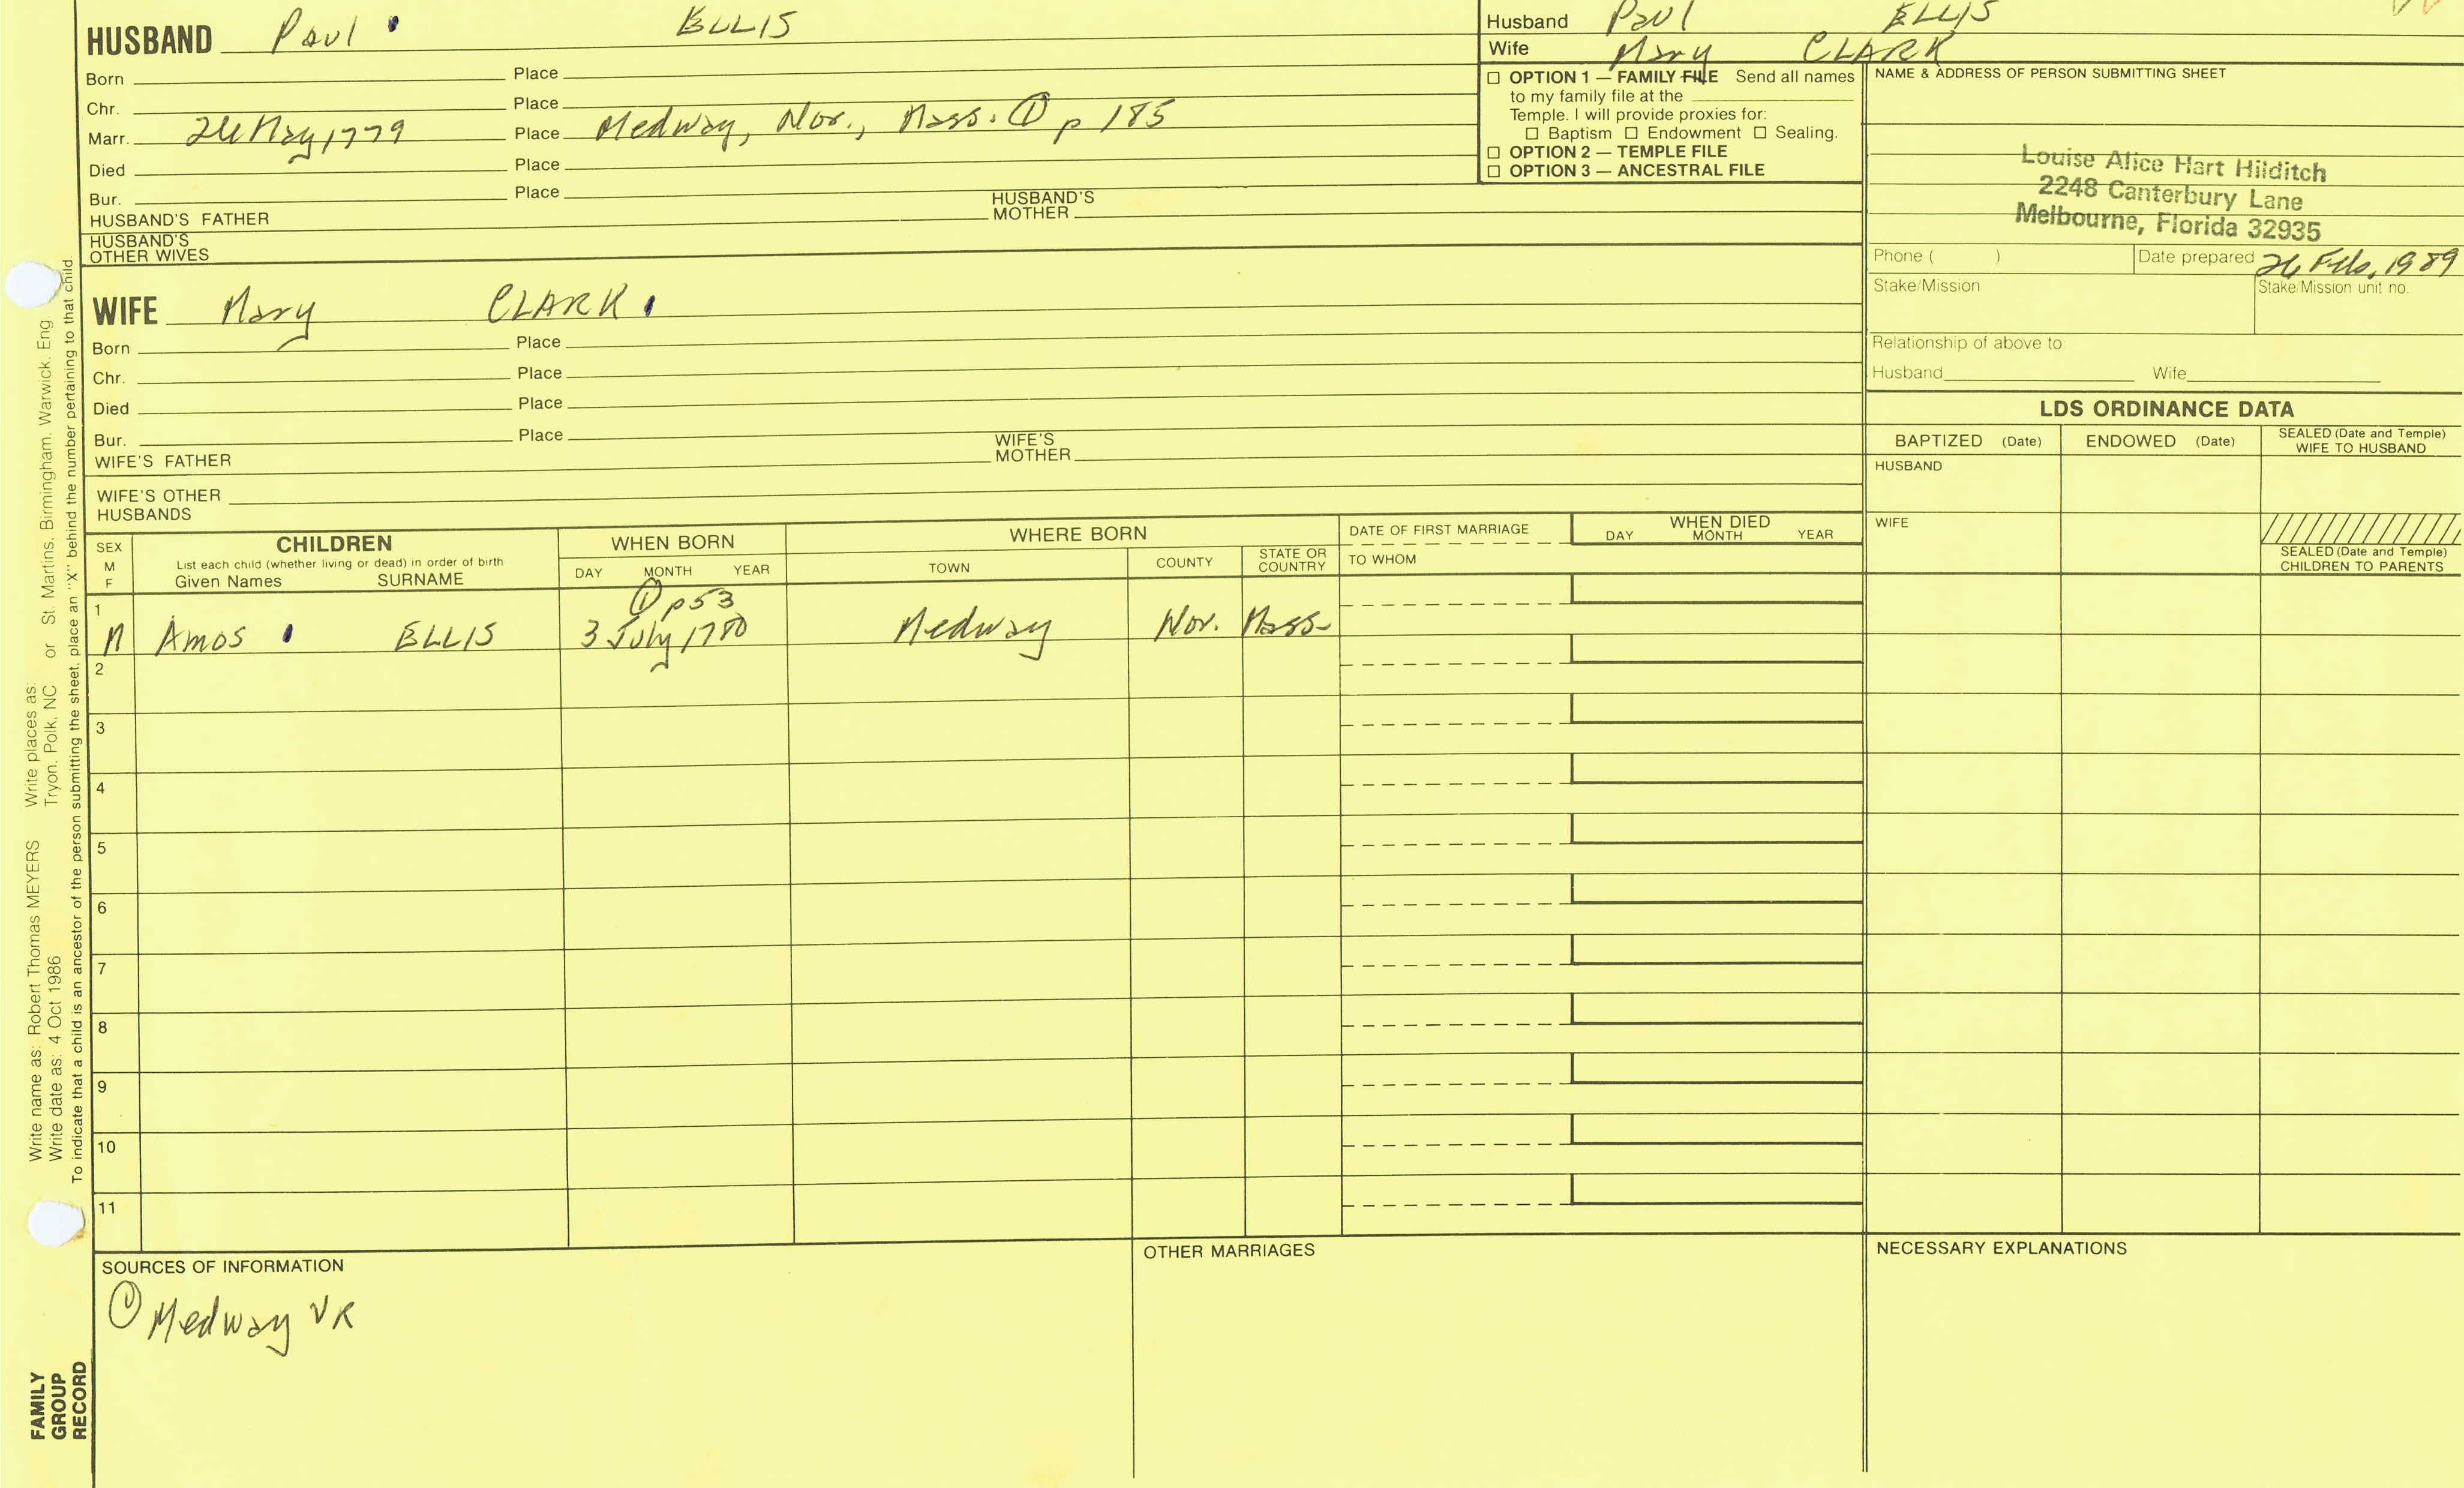 HUSBAND Paul ELLIS
Born Place
Chr. Place
Marr. 24 May 1779 Place Medway, Nor., Mass. ① p 185
Died Place
Bur. Place
HUSBAND'S FATHER HUSBAND'S MOTHER
HUSBAND'S OTHER WIVES
Husband Paul ELLIS
Wife Mary CLARK
☐ OPTION 1 — FAMILY FILE Send all names
to my family file at the
Temple. I will provide proxies for:
☐ Baptism ☐ Endowment ☐ Sealing.
☐ OPTION 2 — TEMPLE FILE
☐ OPTION 3 — ANCESTRAL FILE
NAME & ADDRESS OF PERSON SUBMITTING SHEET
Louise Alice Hart Hilditch
2248 Canterbury Lane
Melbourne, Florida 32935
Phone ( ) Date prepared 26 Feb, 1989
Stake/Mission Stake/Mission unit no.
Relationship of above to
Husband Wife
WIFE Mary CLARK
Born Place
Chr. Place
Died Place
Bur. Place
WIFE'S FATHER WIFE'S MOTHER
WIFE'S OTHER HUSBANDS
LDS ORDINANCE DATA
BAPTIZED (Date) ENDOWED (Date) SEALED (Date and Temple) WIFE TO HUSBAND
HUSBAND
WIFE
SEALED (Date and Temple) CHILDREN TO PARENTS
SEX M F
CHILDREN
List each child (whether living or dead) in order of birth
Given Names SURNAME
WHEN BORN
DAY MONTH YEAR
WHERE BORN
TOWN COUNTY STATE OR COUNTRY
DATE OF FIRST MARRIAGE
TO WHOM
WHEN DIED
DAY MONTH YEAR
① p53
1 M Amos ELLIS 3 July 1780 Medway Nor. Mass-
2
3
4
5
6
7
8
9
10
11
SOURCES OF INFORMATION
① Medway VR
OTHER MARRIAGES
NECESSARY EXPLANATIONS
Write name as: Robert Thomas MEYERS Write places as:
Write date as: 4 Oct 1986 Tryon, Polk, NC or St. Martins, Birmingham, Warwick, Eng.
To indicate that a child is an ancestor of the person submitting the sheet, place an "X" behind the number pertaining to that child
FAMILY
GROUP
RECORD